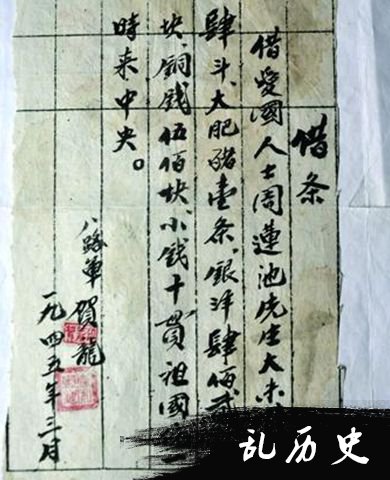 借条
借愛國人士周蓮池先生大米
肆斗、大肥豬壹条、銀洋肆佰
块、铜钱伍佰块、小钱十贯、祖國
時来中央。
八路軍 賀龍
一九四五年三月
乱历史